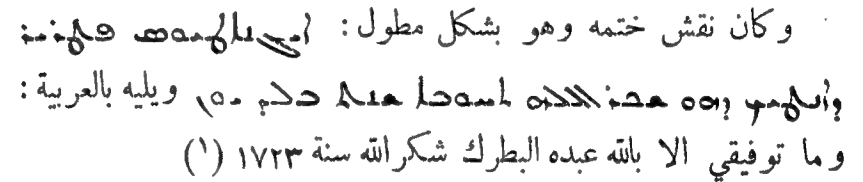 و كان نقش ختمه وهو بشكل مطول : ܐܝܓܢܐܛܝܘܣ ܦܛܪܝܪ
ܕܐܢܛܝܟ ܕܗܘ ܫܟܪܐܠܠܗ ܫܢܬ ܒܠܕ ܝܘܢ ويليه بالعربية :
و ما توفيقي الا بالله عبده البطرك شكرالله سنة ١٧٢٣ (١)